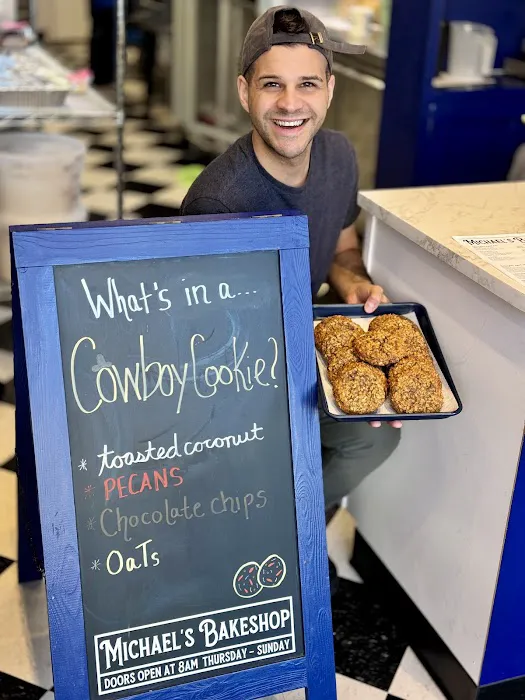 What's in a...
Cowboy Cookie?
* toasted coconut
* PECANS
* Chocolate chips
* Oats
MICHAEL'S BAKESHOP
DOORS OPEN AT 8AM THURSDAY - SUNDAY
MICHAEL'S